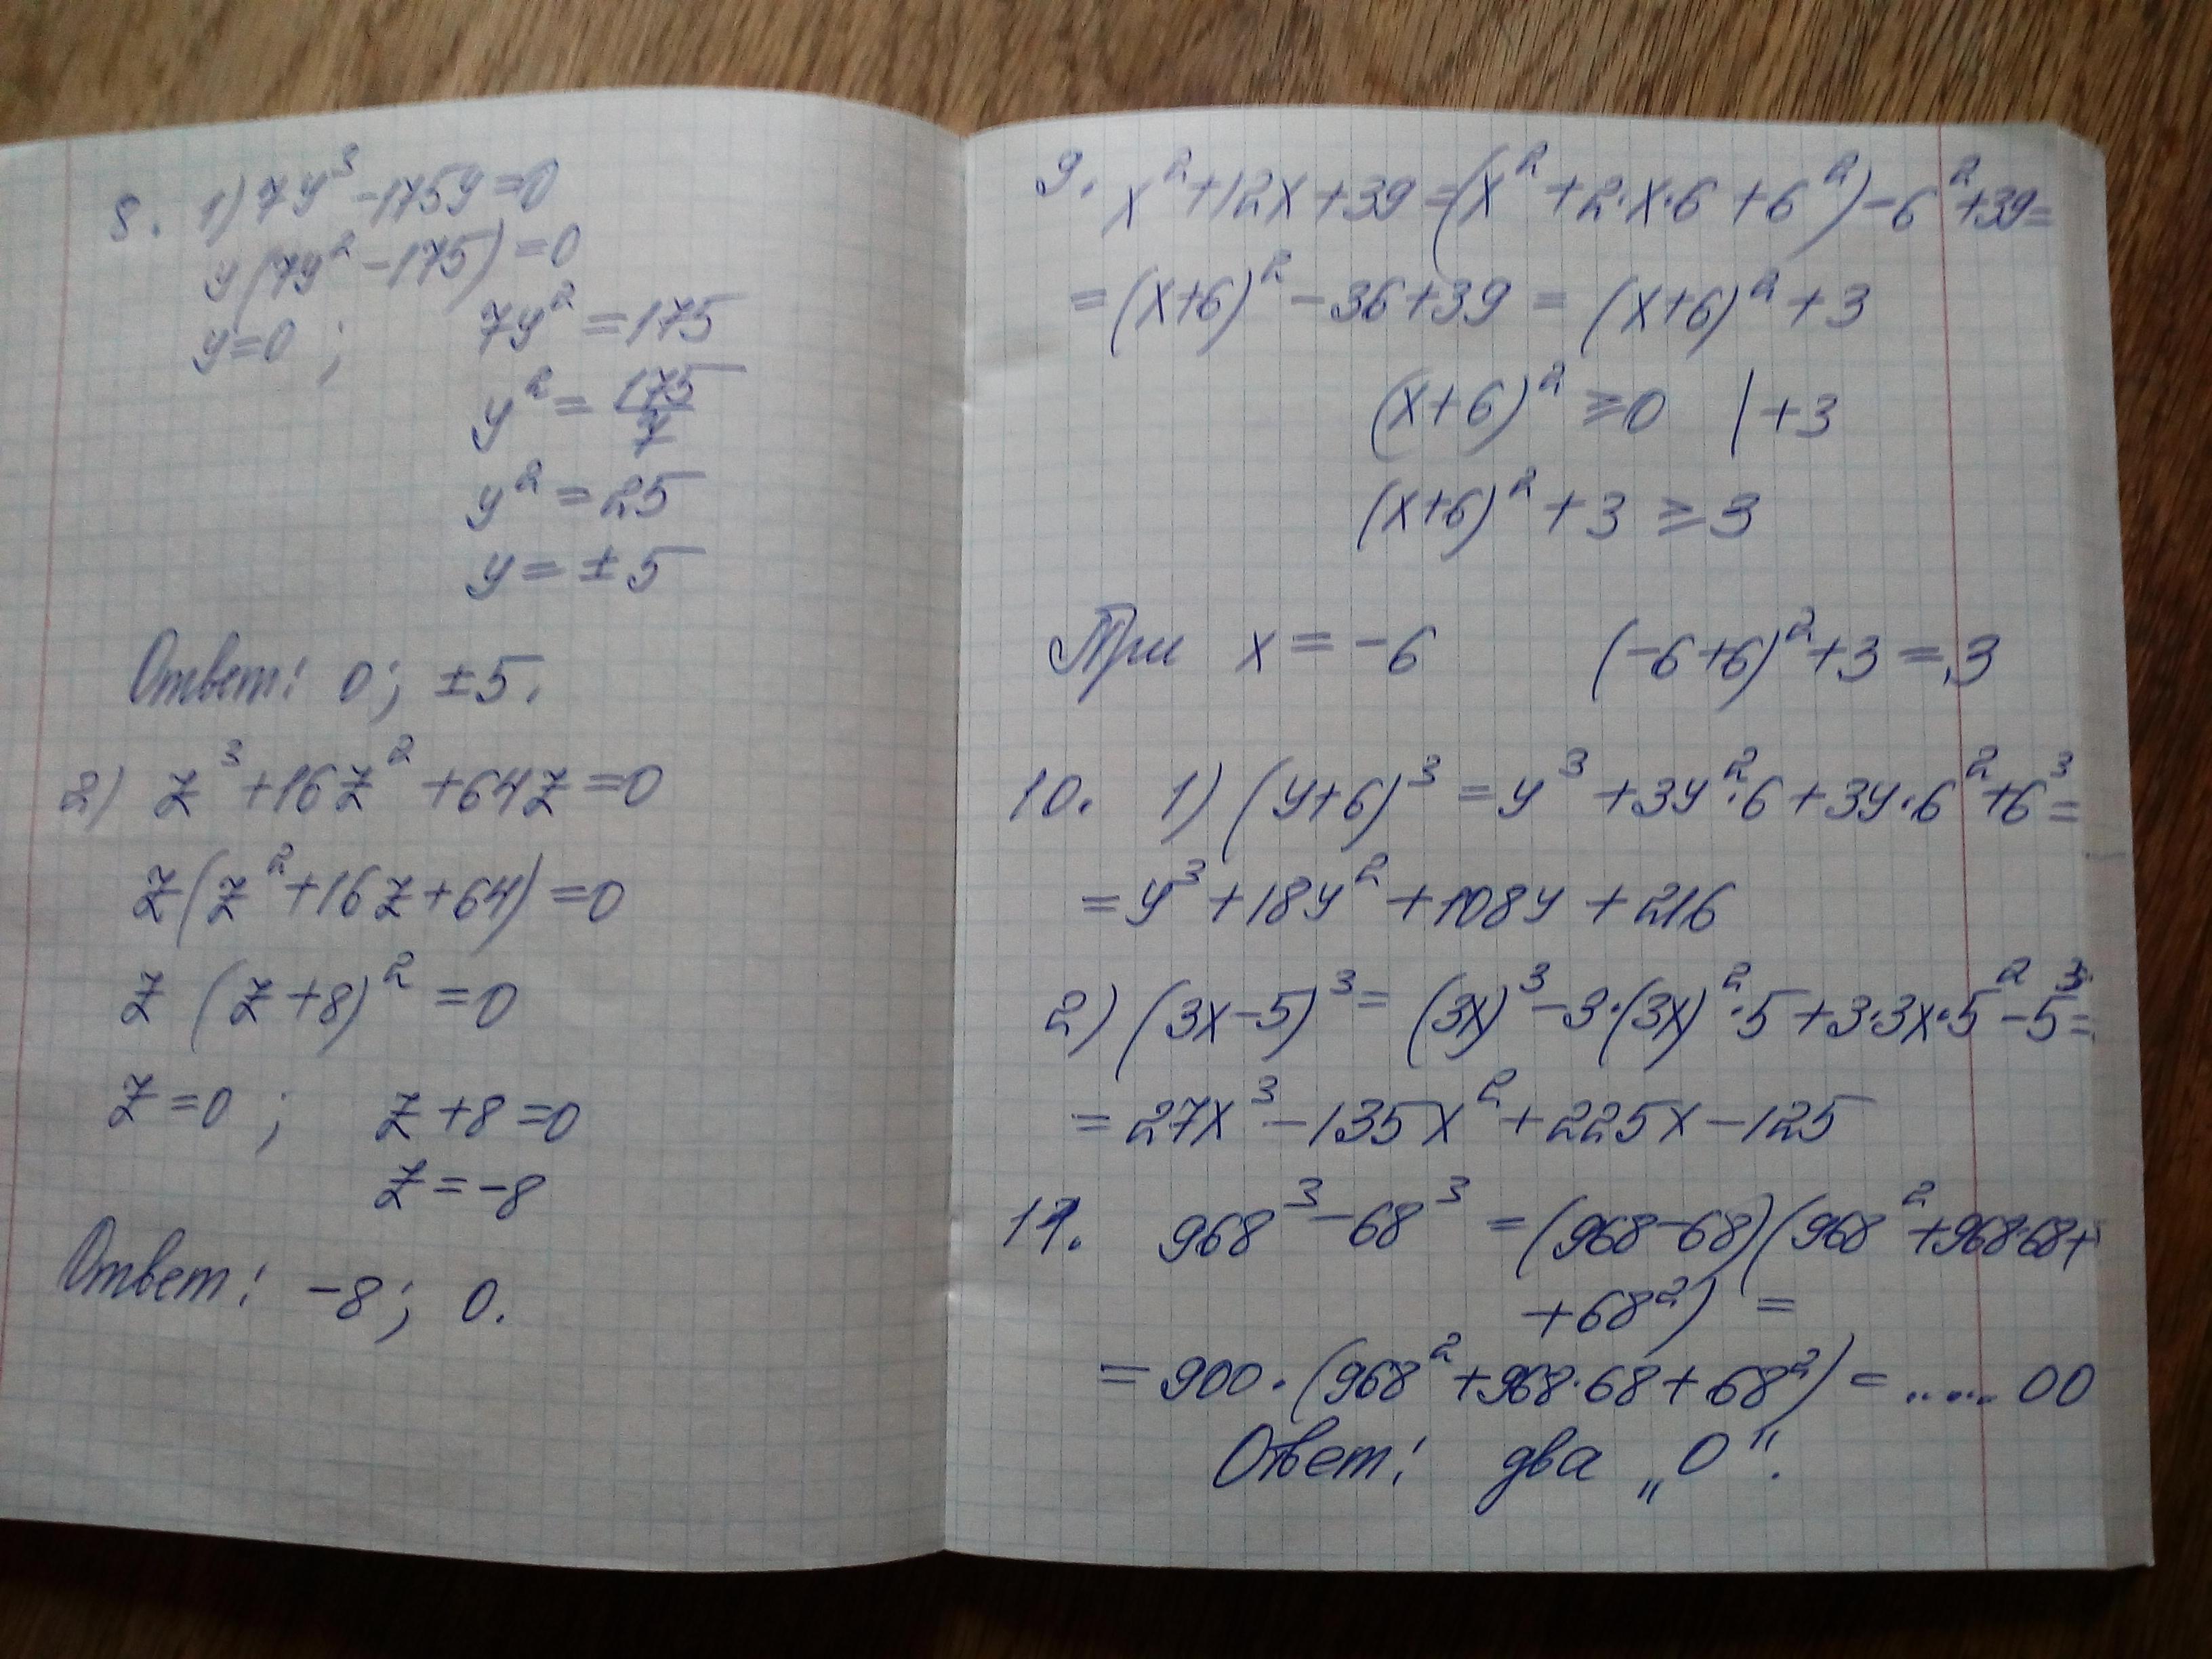 8. 1) 7y³ - 175y = 0
y(7y² - 175) = 0
y = 0 ; 7y² = 175
y² = 175/7
y² = 25
y = ± 5
Ответ: 0; ±5.
2) z³ + 16z² + 64z = 0
z(z² + 16z + 64) = 0
z (z + 8)² = 0
z = 0 ; z + 8 = 0
z = -8
Ответ: -8; 0.
9. x² + 12x + 39 = (x² + 2·x·6 + 6²) - 6² + 39 =
= (x+6)² - 36 + 39 = (x+6)² + 3
(x+6)² ⩾ 0 | +3
(x+6)² + 3 ⩾ 3
При x = -6 (-6+6)² + 3 = 3
10. 1) (y+6)³ = y³ + 3y²·6 + 3y·6² + 6³ =
= y³ + 18y² + 108y + 216
2) (3x-5)³ = (3x)³ - 3·(3x)²·5 + 3·3x·5² - 5³ =
= 27x³ - 135x² + 225x - 125
11. 968³ - 68³ = (968-68)(968² + 968·68 +
+ 68²) =
= 900·(968² + 968·68 + 68²) = ..... 00
Ответ: два „0“.